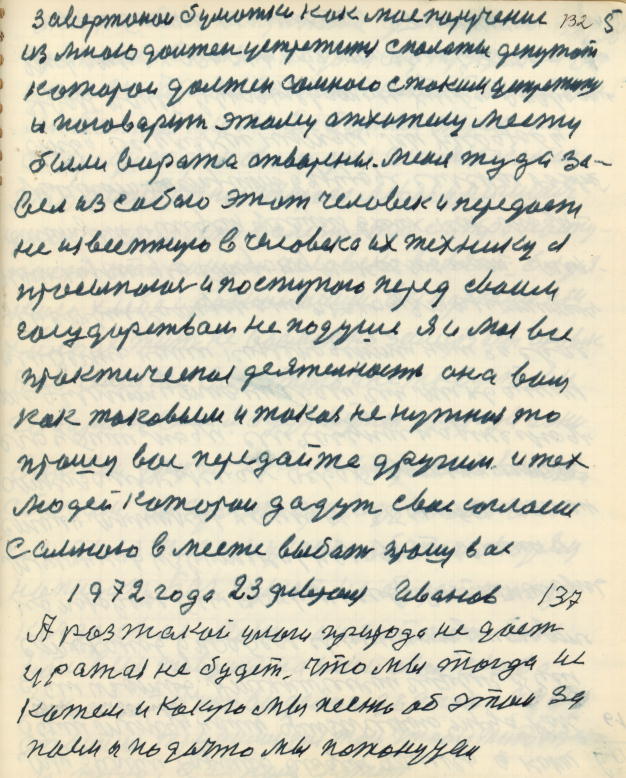 завертоной бумотки как мое поручение 132 5
из много должен устретится с палаты депутат
которои должен самного с таким устретится
и поговарит этому отхотему месту
были варата отварены. меня туда за-
вел из собаю этот человек и передости
не известную в человека их технику я
просыпаюс и поступаю перед своим
государством не подушие я и моя все
практическая деятенност она вам
как таковым и такая не нужна то
прошу вас передайте другим. и тех
людей которои дадут свае согласи
самного вместе выбат прошу вас
1972 года 23 февраля Иванов 137
А раз такой упаги природа не дает
уражая не будет, что мы тогда и
кажем и какую мы песнь об этом за
паем а подчто мы потонцуем